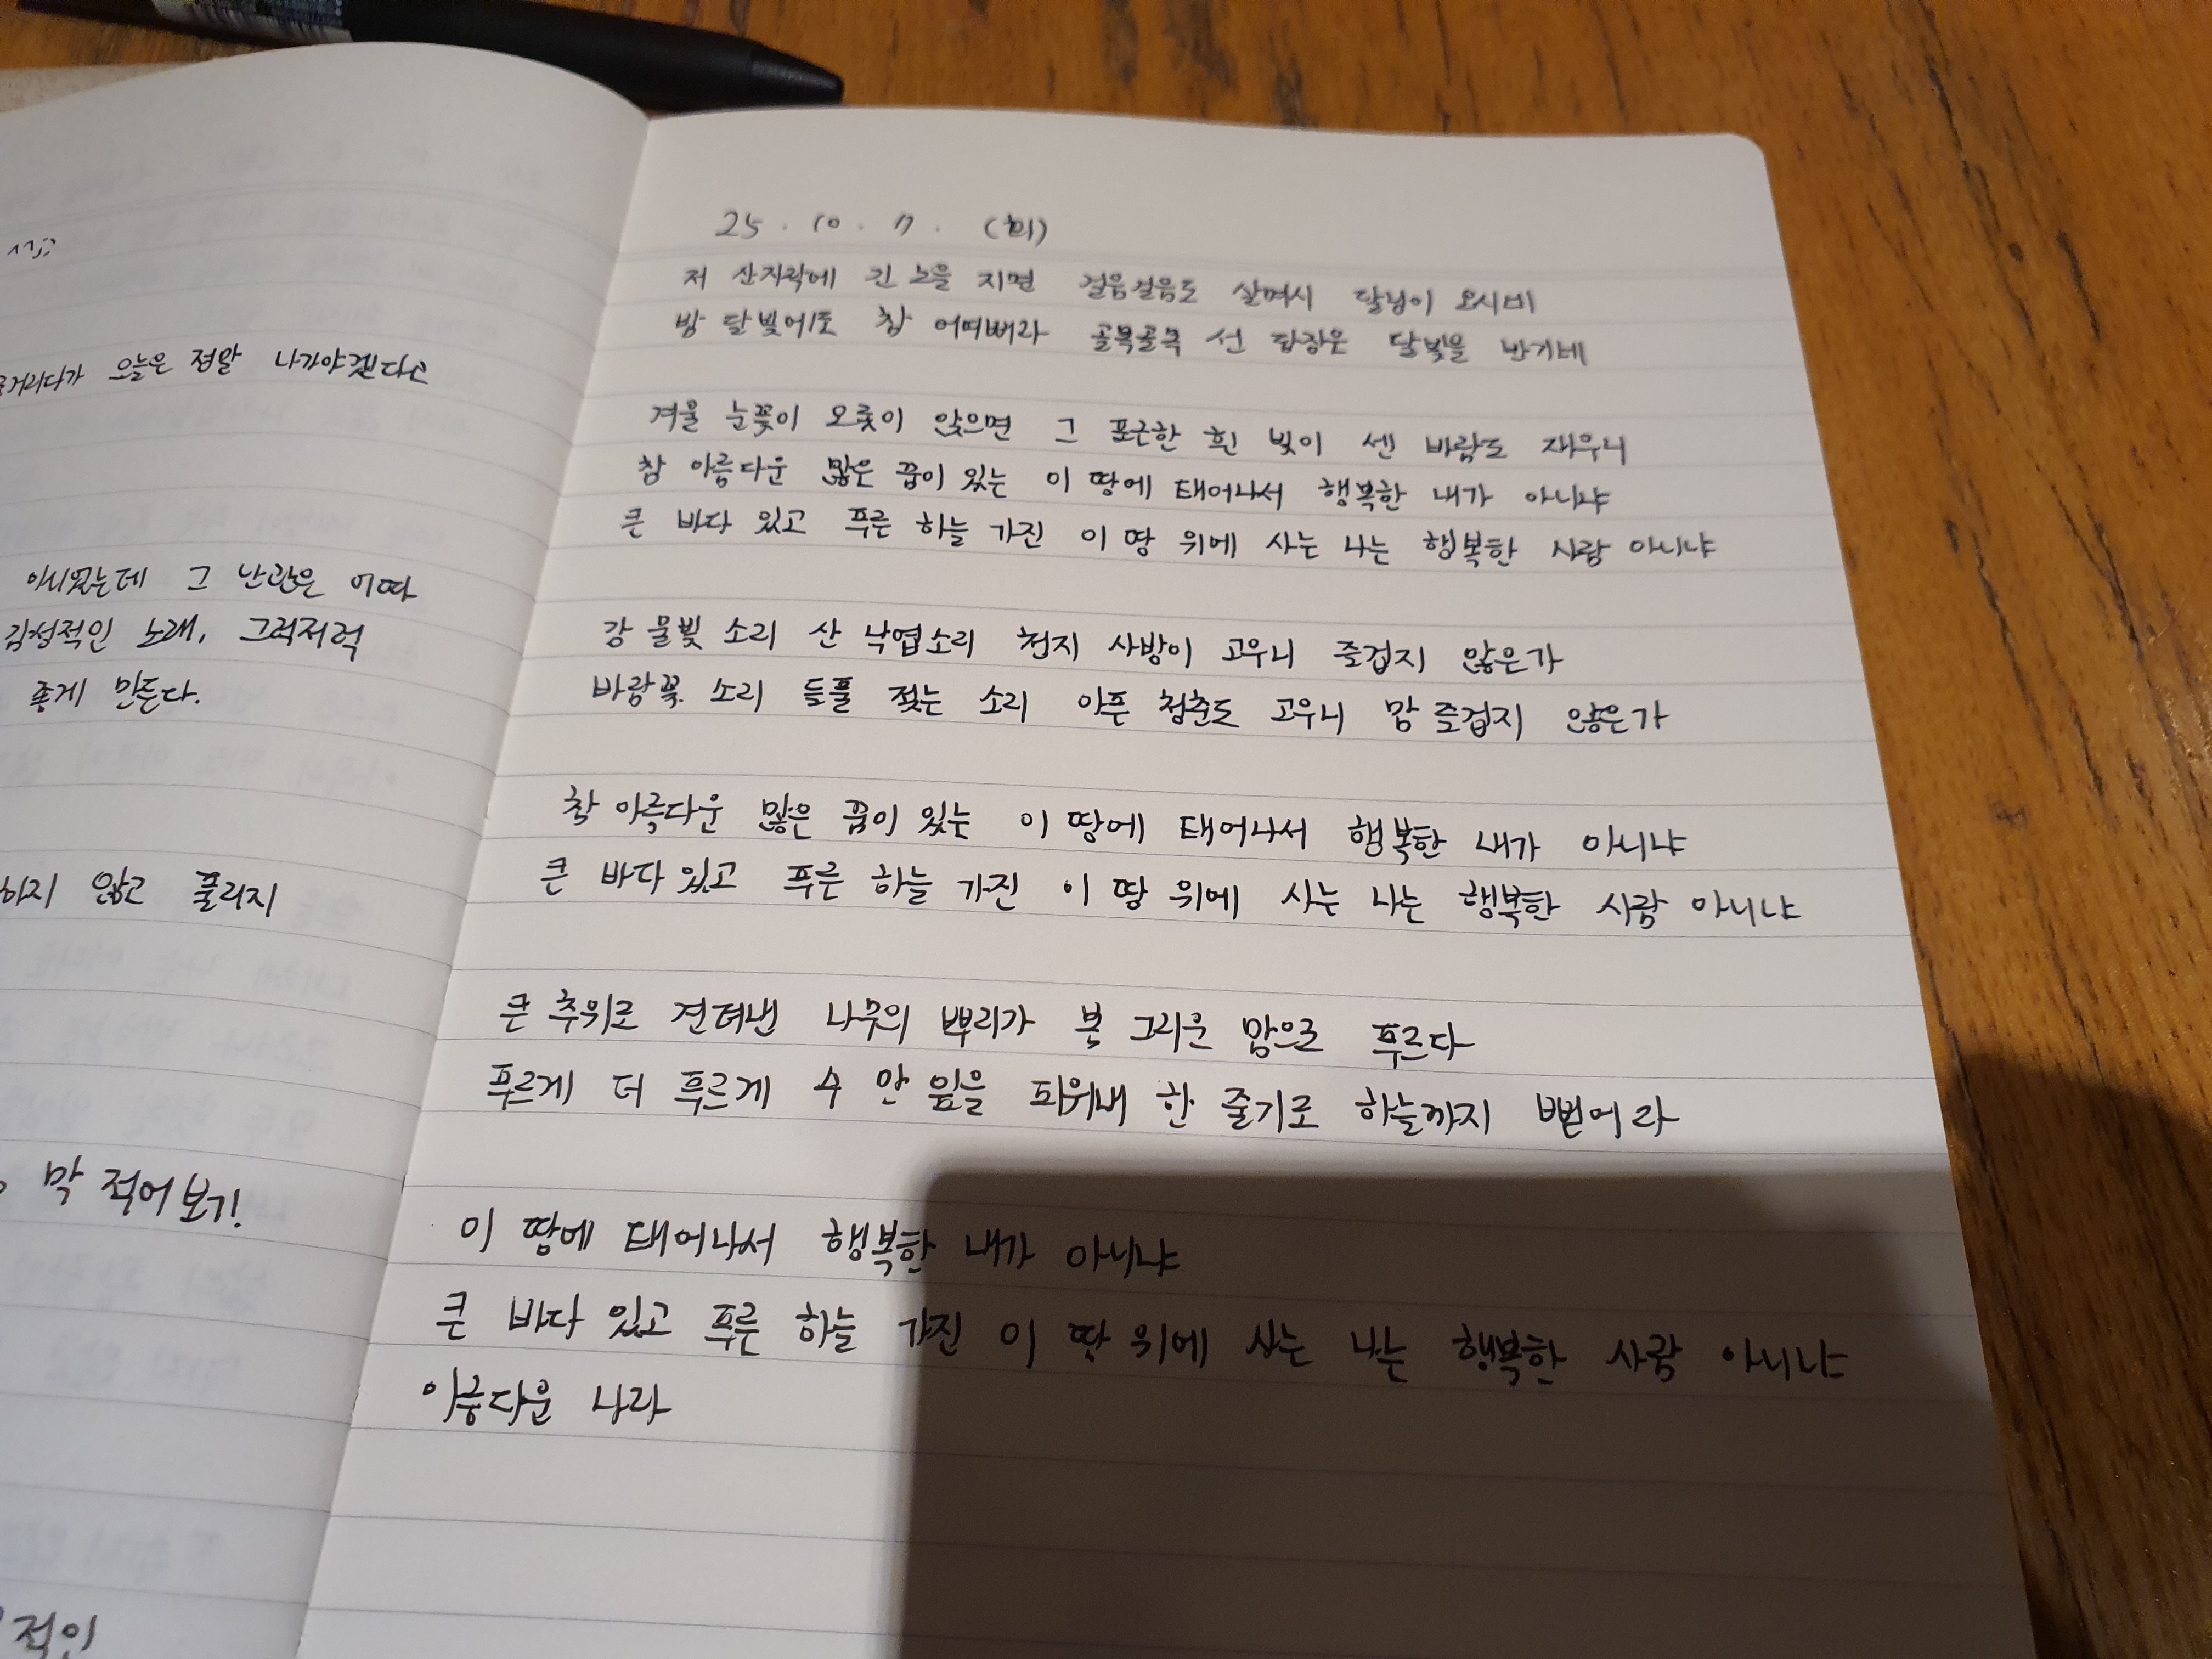 거리다가 오늘은 정말 나가야겠다고
그 난관은 어따
감성적인 노래, 그럭저럭
좋게 만든다.
하지 않고 풀리지
막 적어보기!
적인
25. 10. 7. (화)
저 산자락에 긴 노을 지면 걸음걸음도 살며시 달님이 오시네
밤 달빛에도 참 어여뻐라 골목골목 선 담장은 달빛을 반기네
겨울 눈꽃이 오롯이 앉으면 그 포근한 흰 빛이 센 바람도 재우니
참 아름다운 많은 꿈이 있는 이 땅에 태어나서 행복한 내가 아니냐
큰 바다 있고 푸른 하늘 가진 이 땅 위에 사는 나는 행복한 사람 아니냐
강 물빛 소리 산 낙엽소리 천지 사방이 고우니 즐겁지 않은가
바람꽃 소리 들풀 젖는 소리 아픈 청춘도 고우니 맘 즐겁지 않은가
참 아름다운 많은 꿈이 있는 이 땅에 태어나서 행복한 내가 아니냐
큰 바다 있고 푸른 하늘 가진 이 땅 위에 사는 나는 행복한 사람 아니냐
큰 추위로 견뎌낸 나무의 뿌리가 봄 그리운 맘으로 푸르다
푸르게 더 푸르게 수 만 잎을 피워내 한 줄기로 하늘까지 뻗어라
이 땅에 태어나서 행복한 내가 아니냐
큰 바다 있고 푸른 하늘 가진 이 땅 위에 사는 나는 행복한 사람 아니냐
아름다운 나라